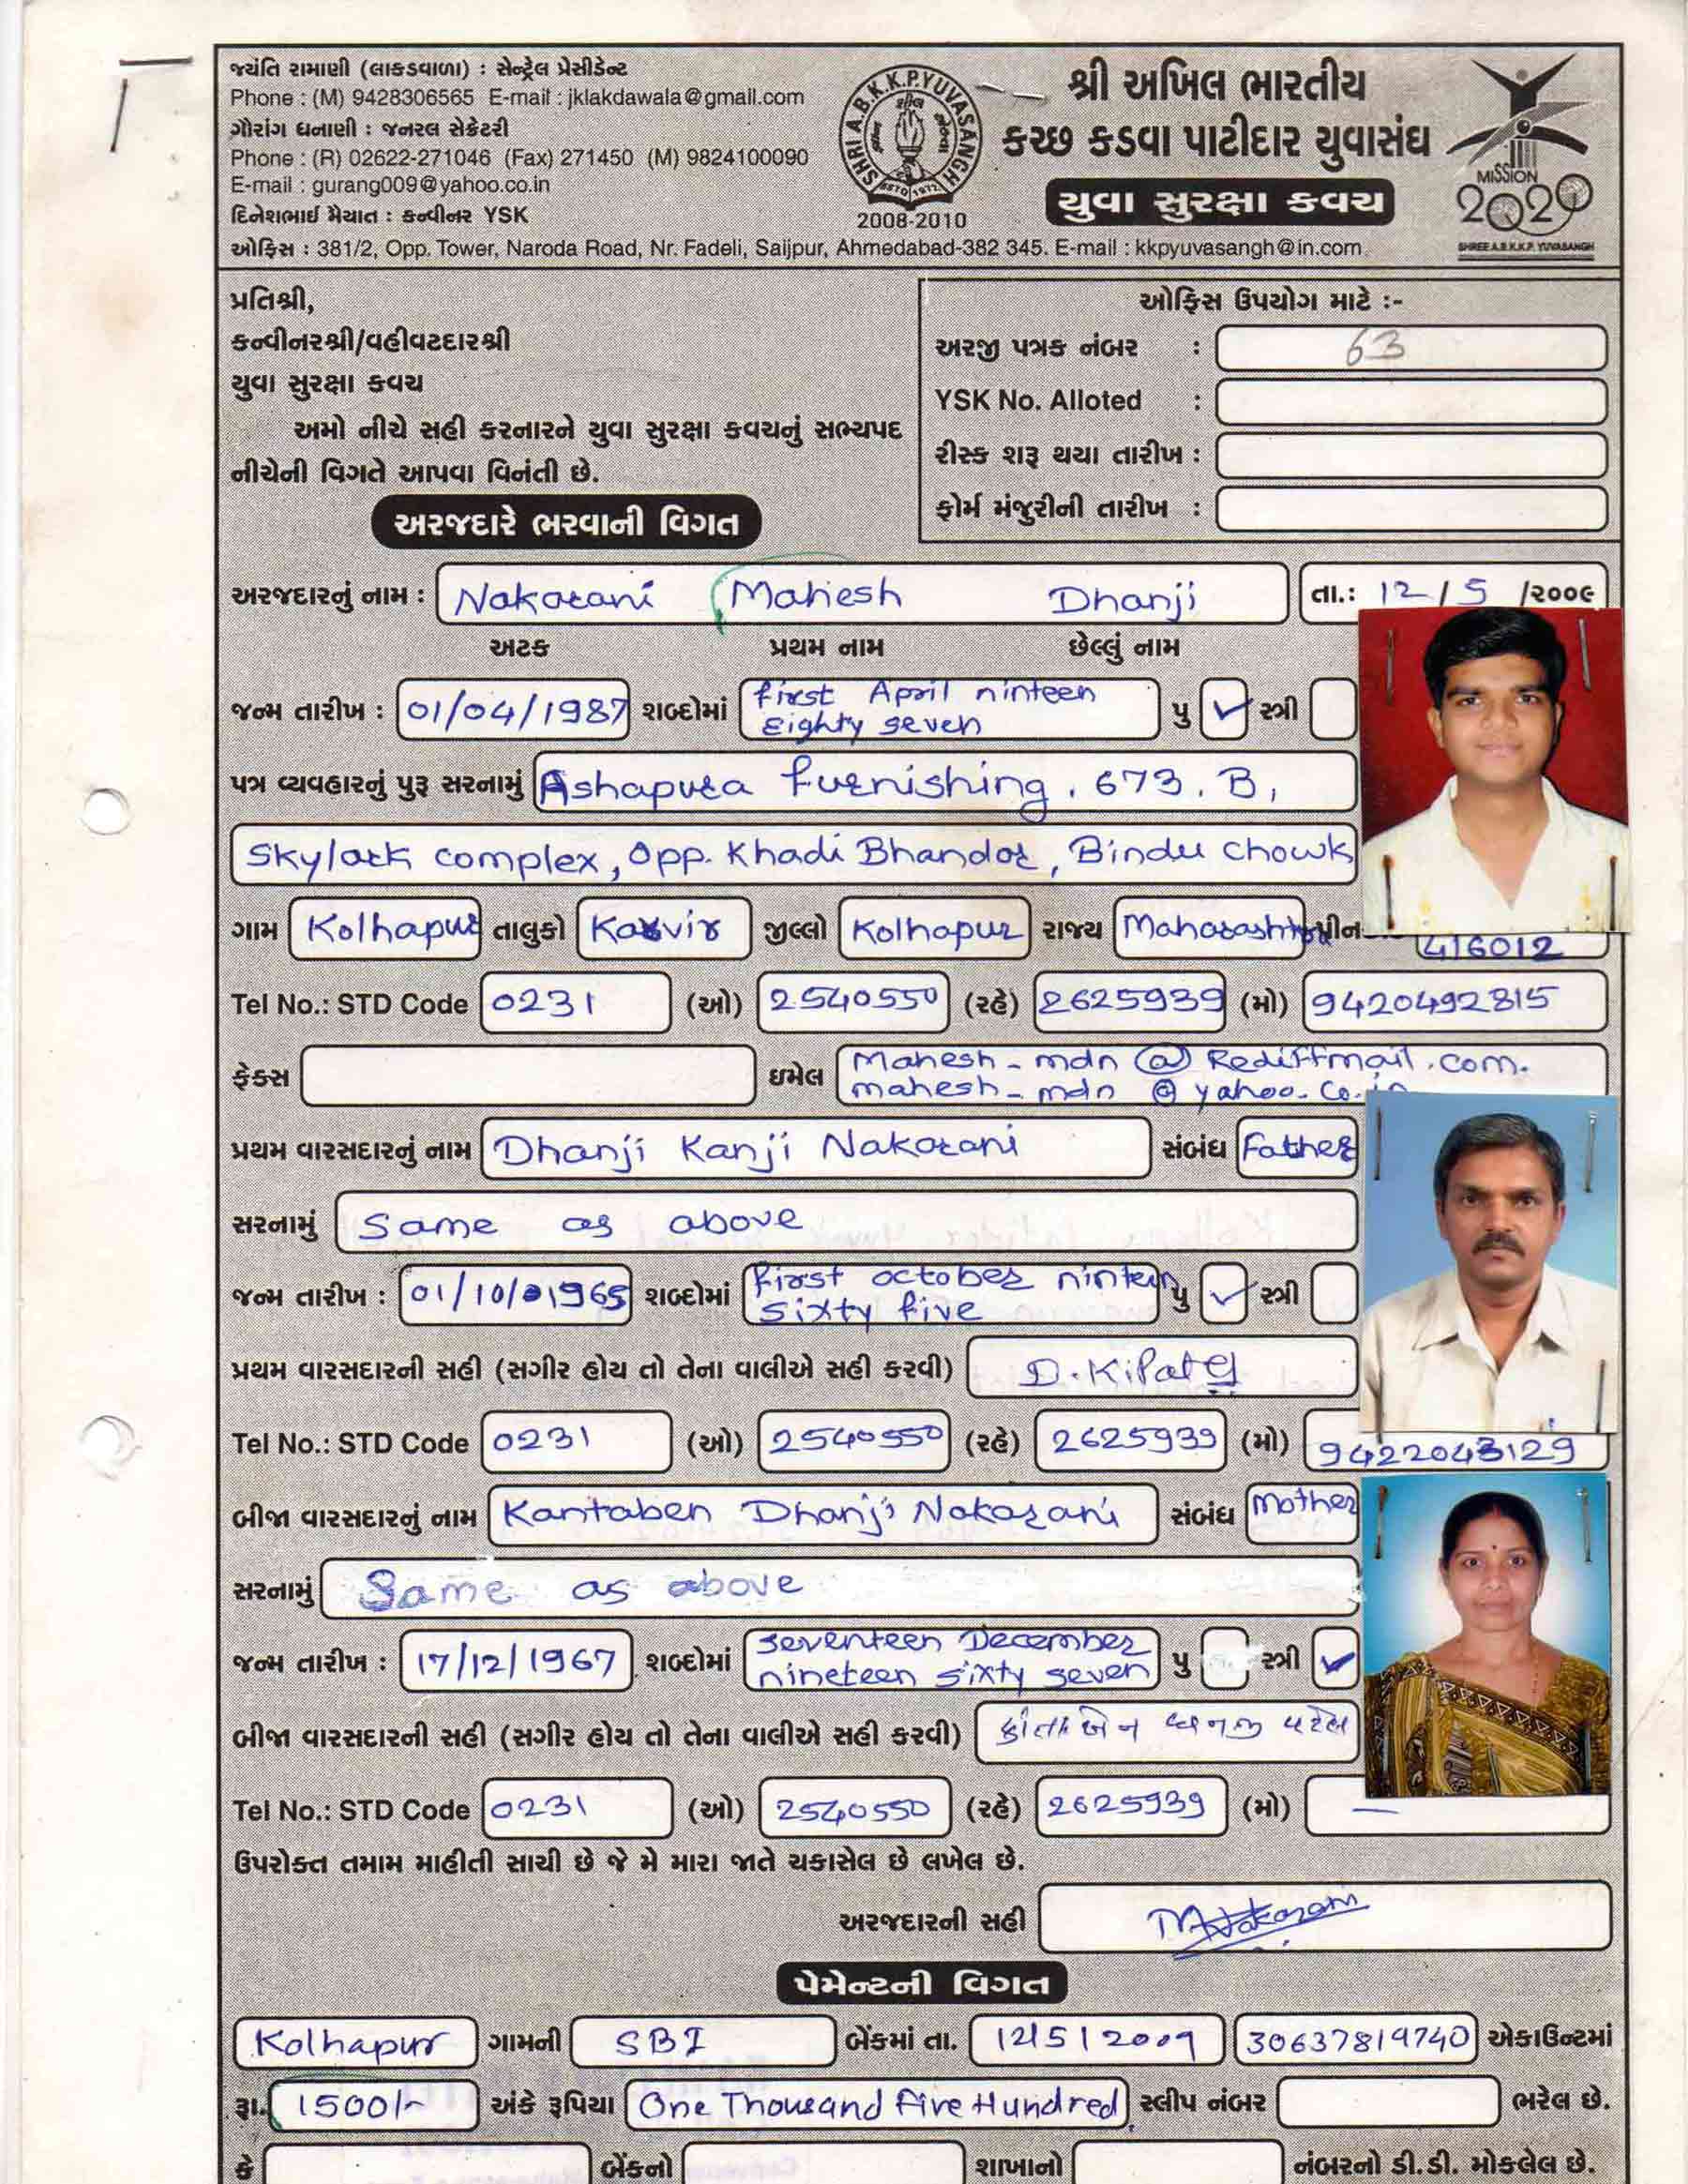 જયંતિ રામાણી (લાકડાવાળા) : સેન્ટ્રેલ પ્રેસીડેન્ટ
Phone : (M) 9428306565 E-mail : jklakdawala@gmail.com
ગૌરાંગ ધનાણી : જનરલ સેક્રેટરી
Phone : (R) 02622-271046 (Fax) 271450 (M) 9824100090
E-mail : gurang009@yahoo.co.in
દિનેશભાઈ મૈયાત : કન્વીનર YSK
SHRI A.B.K.K.P. YUVASANGH
ESTD 1972
2008-2010
શ્રી અખિલ ભારતીય
કચ્છ કડવા પાટીદાર યુવાસંઘ
યુવા સુરક્ષા કવચ
MISSION
2020
SHREE A.B.K.K.P. YUVASANGH
ઓફિસ : 381/2, Opp. Tower, Naroda Road, Nr. Fadeli, Saijpur, Ahmedabad-382 345. E-mail : kkpyuvasangh@in.com
પ્રતિશ્રી,
કન્વીનરશ્રી/વહીવટદારશ્રી
યુવા સુરક્ષા કવચ
અમો નીચે સહી કરનારને યુવા સુરક્ષા કવચનું સભ્યપદ
નીચેની વિગતે આપવા વિનંતી છે.
ઓફિસ ઉપયોગ માટે :-
અરજી પત્રક નંબર : 63
YSK No. Alloted :
રીસ્ક શરૂ થયા તારીખ :
ફોર્મ મંજુરીની તારીખ :
અરજદારે ભરવાની વિગત
અરજદારનું નામ : Nakarani Mahesh Dhanji તા.: 12/5 /૨૦૦૯
અટક પ્રથમ નામ છેલ્લું નામ
જન્મ તારીખ : 01/04/1987 શબ્દોમાં first April ninteen Eighty seven પુ ✓ સ્ત્રી
પત્ર વ્યવહારનું પુરૂ સરનામું Ashapura furnishing, 673, B,
Skylark complex, Opp. Khadi Bhandar, Bindu chowk
ગામ Kolhapur તાલુકો Karvir જીલ્લો Kolhapur રાજ્ય Maharashtra પીન 416012
Tel No.: STD Code 0231 (ઓ) 2540550 (રહે) 2625939 (મો) 9420492815
ફેક્સ ઇમેલ Mahesh_mdn @ Rediffmail.com.
mahesh_mdn @ yahoo.co.in
પ્રથમ વારસદારનું નામ Dhanji Kanji Nakarani સંબંધ Father
સરનામું Same as above
જન્મ તારીખ : 01/10/1965 શબ્દોમાં first october ninteen sixty five પુ ✓ સ્ત્રી
પ્રથમ વારસદારની સહી (સગીર હોય તો તેના વાલીએ સહી કરવી)
Tel No.: STD Code 0231 (ઓ) 2540550 (રહે) 2625939 (મો) 9422043129
બીજા વારસદારનું નામ Kantaben Dhanji Nakarani સંબંધ Mother
સરનામું Same as above
જન્મ તારીખ : 17/12/1967 શબ્દોમાં seventeen December nineteen sixty seven પુ સ્ત્રી ✓
બીજા વારસદારની સહી (સગીર હોય તો તેના વાલીએ સહી કરવી) કાંતાબેન ધનજી પટેલ
Tel No.: STD Code 0231 (ઓ) 2540550 (રહે) 2625939 (મો) —
ઉપરોક્ત તમામ માહીતી સાચી છે જે મે મારા જાતે ચકાસેલ છે લખેલ છે.
અરજદારની સહી MNakarani
પેમેન્ટની વિગત
Kolhapur ગામની SBI બેંકમાં તા. 12/5/2009 30637819740 એકાઉન્ટમાં
રૂા. 1500/- અંકે રૂપિયા One Thousand Five Hundred સ્લીપ નંબર ભરેલ છે.
કે બેંકનો શાખાનો નંબરનો ડી.ડી. મોકલેલ છે.